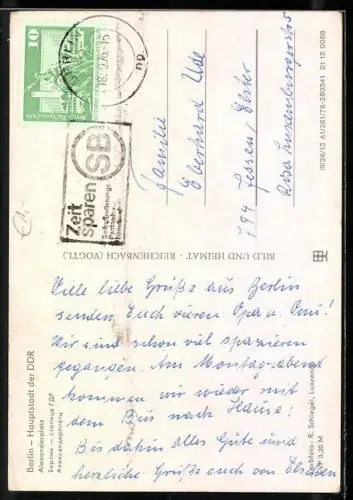 Berlin – Hauptstadt der DDR
Alexanderplatz
Берлин — столица ГДР
Александерплатц
Viele liebe Grüße aus Berlin
senden Euch vieren Opa u. Omi!
Wir sind schon viel spazieren
gegangen. Am Montag-abend
kommen wir wieder mit
dem Bus nach Hause!
Bis dahin alles Gute und
herzliche Grüße auch von
10
18.9.76-15
np
Zeit
sparen
SB
Selbstbedienungs-
BILD UND HEIMAT · REICHENBACH (VOGTL)
Familie
Eberhard Ude
794 Jessen/Elster
Rosa Luxemburgerstr.
III/26/13 A1/281/76-280341 01 15 0088
Farbfoto: R. Schlegel,
0,20 M